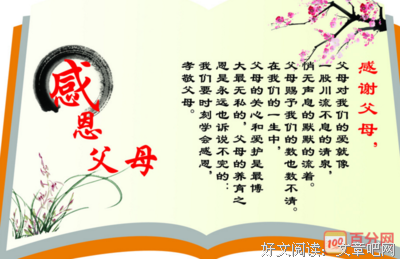 感恩
父母
感谢父母,
父母对我们的爱就像
一股川流不息的清泉,
悄无声息的默默的流着。
父母赐予我们的数也数不清。
在我们的一生中,
父母的关心和爱护是最博
大最无私的,父母的养育之
恩是永远也诉说不完的:
我们要时刻学会感恩,
孝敬父母。
100 百分网
好文阅读:文章吧网